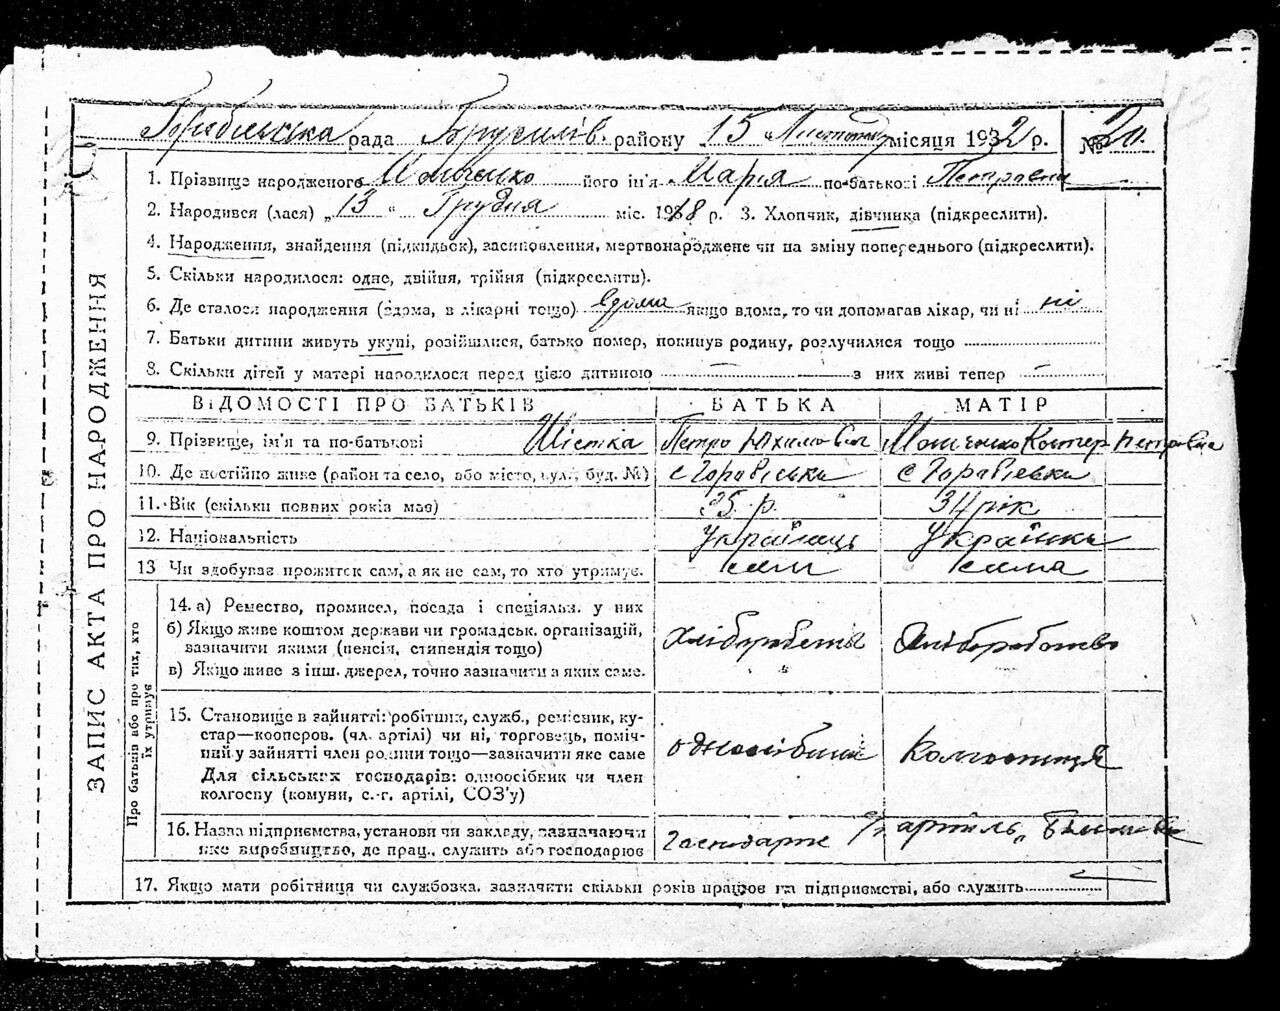 рада Брусилів району 15 Листопад місяця 1932 р. № 20.
ЗАПИС АКТА ПРО НАРОДЖЕННЯ
1. Прізвище народженого його ім'я Марія по-батькові Петровна
2. Народився (лася) „13" Грудня міс. 1928 р. 3. Хлопчик, дівчинка (підкреслити).
4. Народження, знайдення (підкидьок), засиновлення, мертвонароджене чи на зміну попереднього (підкреслити).
5. Скільки народилося: одне, двійня, трійня (підкреслити).
6. Де сталося народження (вдома, в лікарні тощо) вдома якщо вдома, то чи допомагав лікар, чи ні ні
7. Батьки дитини живуть укупі, розійшлися, батько помер, покинув родину, розлучилися тощо
8. Скільки дітей у матері народилося перед цією дитиною — з них живі тепер —
ВІДОМОСТІ ПРО БАТЬКІВ БАТЬКА МАТІР
9. Прізвище, ім'я та по-батькові Шістка Петро Юхимович Петровна
10. Де постійно живе (район та село, або місто, вул., буд. №)
11. Вік (скільки повних років має) 35 р. 34 рік
12. Національність Українець Українка
13 Чи здобував прожиток сам, а як не сам, то хто утримує. сам сама
Про батьків або про тих, хто їх утримує
14. а) Ремество, промисел, посада і спеціяльн. у них
б) Якщо живе коштом держави чи громадськ. організацій,
вазначити якими (пенсія, стипендія тощо) Хліборобство
в) Якщо живе з інш. джерел, точно зазначити з яких саме.
15. Становище в зайнятті: робітник, служб., ремісник, ку-
стар—кооперов. (чл. артілі) чи ні, торговець, поміч-
ний у зайнятті член родини тощо—зазначити яке саме
Для сільських господарів: одноосібник чи член одноосібник колгоспниця
колгоспу (комуни, с.-г. артілі, СОЗ'у)
16. Назва підприємства, установи чи закладу, зазначаючи артіль
яке виробництво, де прац., служить або господарює
17. Якщо мати робітниця чи службовка. зазначити скільки років працює на підприємстві, або служить